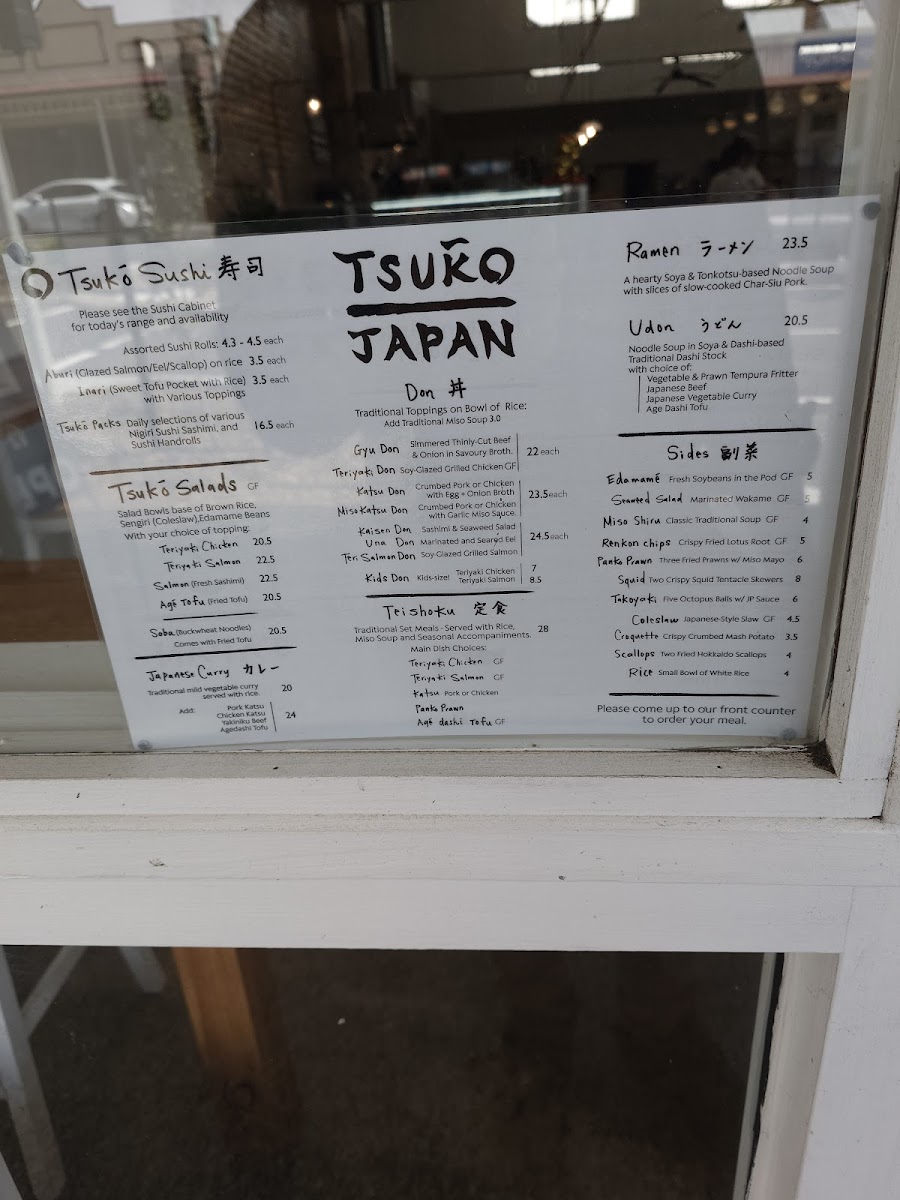 Tsukō Sushi 寿司
Please see the Sushi Cabinet
for today's range and availability
Assorted Sushi Rolls: 4.3 - 4.5 each
Aburi (Glazed Salmon/Eel/Scallop) on rice 3.5 each
Inari (Sweet Tofu Pocket with Rice) 3.5 each
with Various Toppings
Tsukō Packs Daily selections of various
Nigiri Sushi Sashimi, and 16.5 each
Sushi Handrolls
Tsukō Salads GF
Salad Bowls base of Brown Rice,
Sengiri (Coleslaw), Edamame Beans
With your choice of topping:
Teriyaki Chicken 20.5
Teriyaki Salmon 22.5
Salmon (Fresh Sashimi) 22.5
Agé Tofu (Fried Tofu) 20.5
Soba (Buckwheat Noodles) 20.5
Comes with Fried Tofu
Japanese Curry カレー
Traditional mild vegetable curry 20
served with rice.
Add: Pork Katsu
Chicken Katsu 24
Yakiniku Beef
Agedashi Tofu
TSUKŌ
JAPAN
Don 丼
Traditional Toppings on Bowl of Rice:
Add Traditional Miso Soup 3.0
Gyu Don Simmered Thinly-Cut Beef
& Onion in Savoury Broth. 22 each
Teriyaki Don Soy-Glazed Grilled Chicken GF
Katsu Don Crumbed Pork or Chicken
with Egg + Onion Broth 23.5 each
Miso Katsu Don Crumbed Pork or Chicken
with Garlic Miso Sauce.
Kaisen Don Sashimi & Seaweed Salad
Una Don Marinated and Seared Eel 24.5 each
Teri Salmon Don Soy-Glazed Grilled Salmon
Kids Don Kids-size! Teriyaki Chicken 7
Teriyaki Salmon 8.5
Teishoku 定食
Traditional Set Meals - Served with Rice, 28
Miso Soup and Seasonal Accompaniments.
Main Dish Choices:
Teriyaki Chicken GF
Teriyaki Salmon GF
Katsu Pork or Chicken
Panko Prawn
Agé dashi Tofu GF
Ramen ラーメン 23.5
A hearty Soya & Tonkotsu-based Noodle Soup
with slices of slow-cooked Char-Siu Pork.
Udon うどん 20.5
Noodle Soup in Soya & Dashi-based
Traditional Dashi Stock
with choice of:
Vegetable & Prawn Tempura Fritter
Japanese Beef
Japanese Vegetable Curry
Age Dashi Tofu
Sides 副菜
Edamamé Fresh Soybeans in the Pod GF 5
Seaweed Salad Marinated Wakame GF 5
Miso Shiru Classic Traditional Soup GF 4
Renkon chips Crispy Fried Lotus Root GF 5
Panko Prawn Three Fried Prawns w/ Miso Mayo 6
Squid Two Crispy Squid Tentacle Skewers 8
Takoyaki Five Octopus Balls w/ JP Sauce 6
Coleslaw Japanese-Style Slaw GF 4.5
Croquette Crispy Crumbed Mash Potato 3.5
Scallops Two Fried Hokkaido Scallops 4
Rice Small Bowl of White Rice 4
Please come up to our front counter
to order your meal.